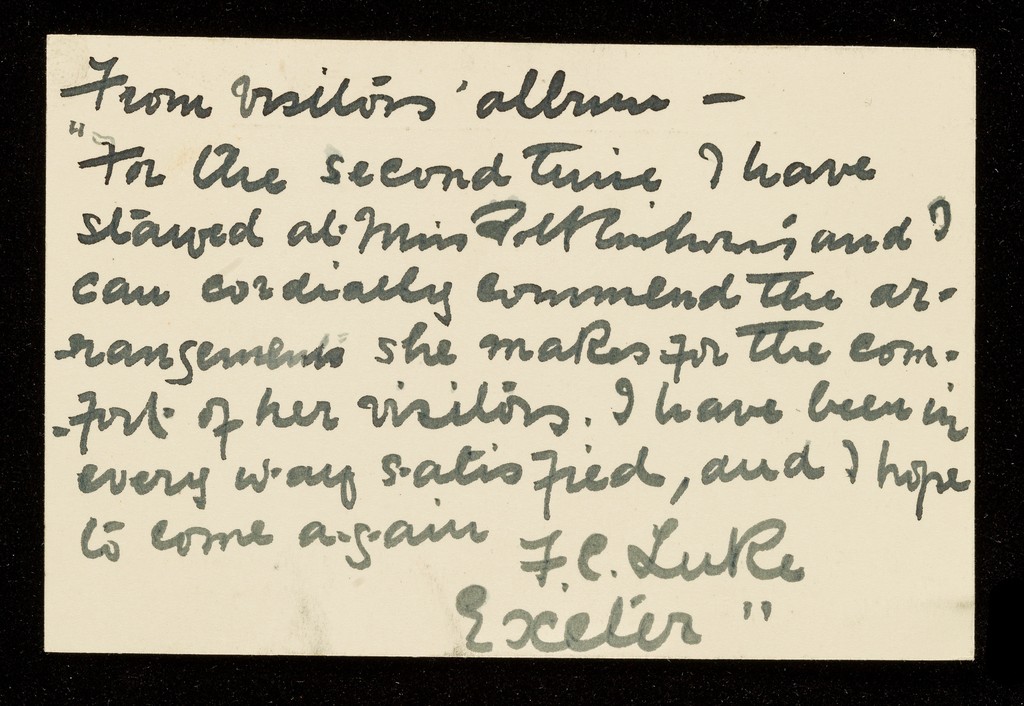 From visitors' album —
"For the second time I have
stayed at Miss and I
can cordially commend the ar-
-rangements she makes for the com-
-fort of her visitors. I have been in
every way satisfied, and I hope
to come again
F. C. Luke
Exeter"